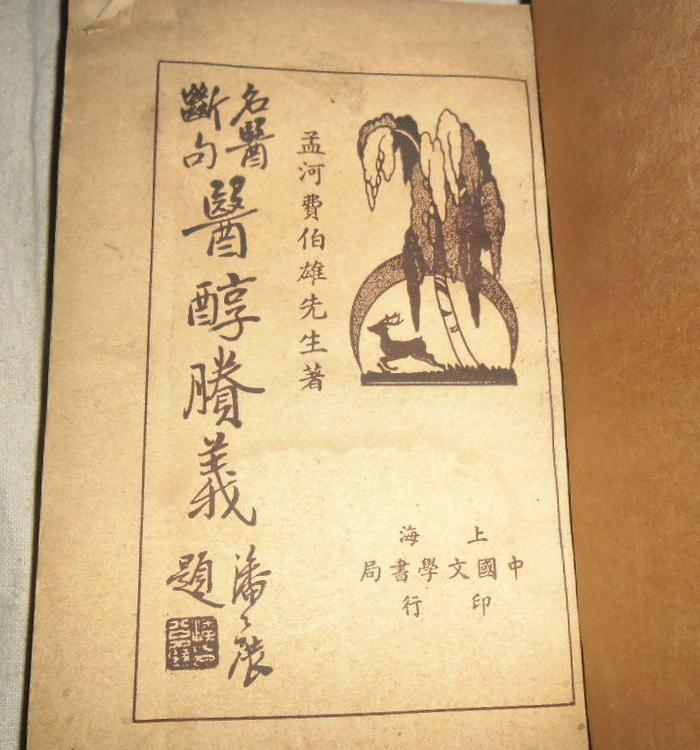 上海
中國文學書局
印行
孟河費伯雄先生著
名醫
斷句
醫醇賸義
潘公展
題